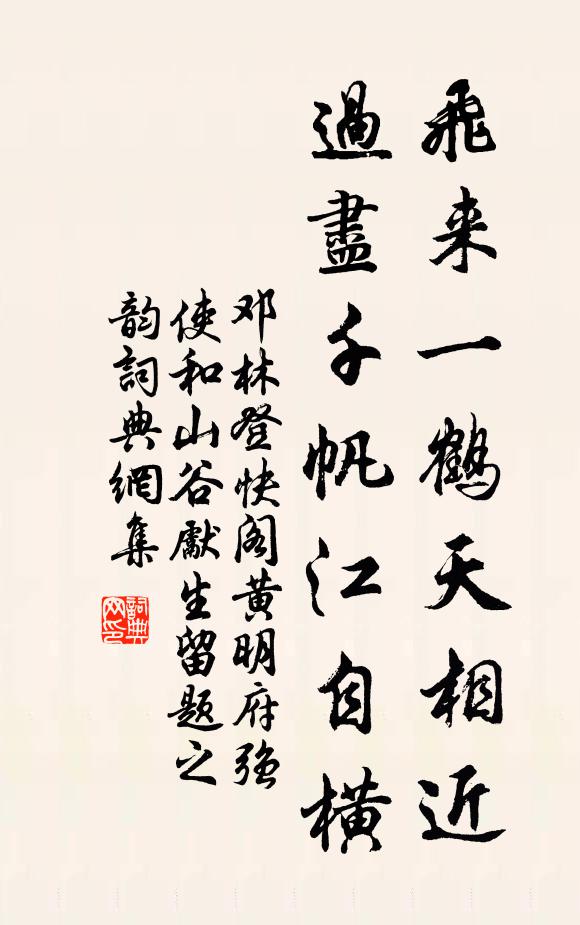 飛来一鶴天相近
過盡千帆江自橫
邓林登快阁黄明府强
使和山谷獻生留题之
韵詞典網集
詞典
网印